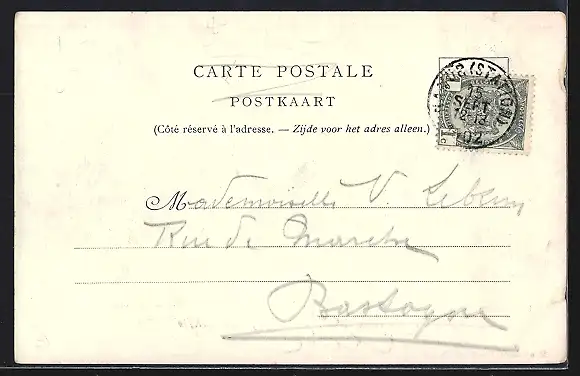 CARTE POSTALE
POSTKAART
(Côté réservé à l'adresse. — Zijde voor het adres alleen.)
(STATION)
15
SEPT
02
Mademoiselle V. Leblun
Rue de Marche
Bastogne